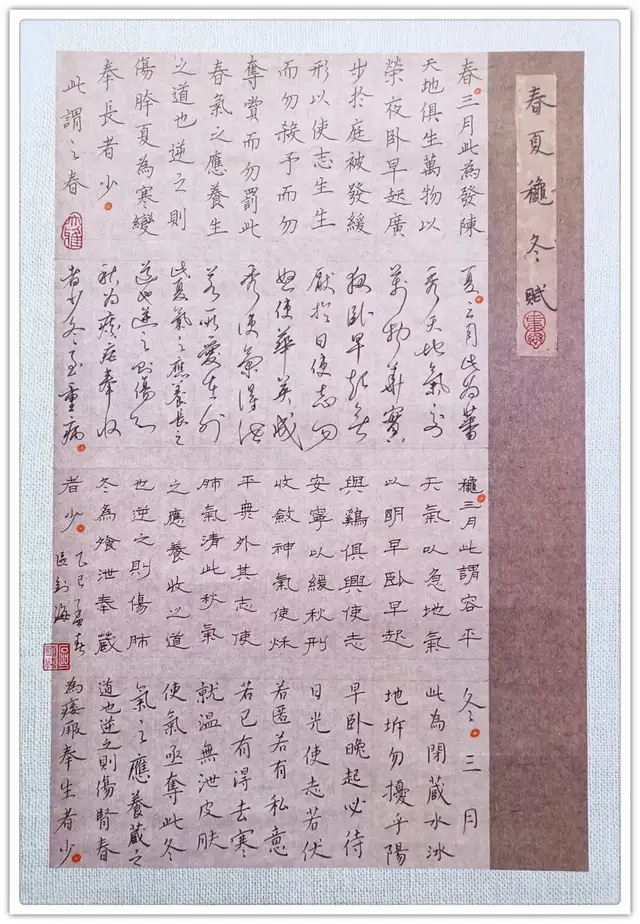 春夏穐冬賦
春三月此為發陳
天地俱生萬物以
榮夜卧早起廣
步於庭被發緩
形以使志生生
而勿殺予而勿
奪賞而勿罰此
春氣之應養生
之道也逆之則
傷肝夏為寒變
奉長者少
此謂之春
大雅
夏三月此為蕃
秀天地氣交
萬物華實
夜卧早起無
厭於日使志勿
怒使華英成
秀使氣得泄
若所愛在外
此夏氣之應養長之
道也逆之則傷心
秋為痎瘧奉收
者少冬至重病
穐三月此謂容平
天氣以急地氣
以明早卧早起
與鷄俱興使志
安寧以緩秋刑
收斂神氣使秌
平無外其志使
肺氣清此秋氣
之應養收之道
也逆之則傷肺
冬為飧泄奉藏
者少
乙巳孟春
冬三月
此為閉藏水冰
地坼勿擾乎陽
早卧晚起必待
日光使志若伏
若匿若有私意
若已有得去寒
就溫無泄皮膚
使氣亟奪此冬
氣之應養藏之
道也逆之則傷腎春
為痿厥奉生者少